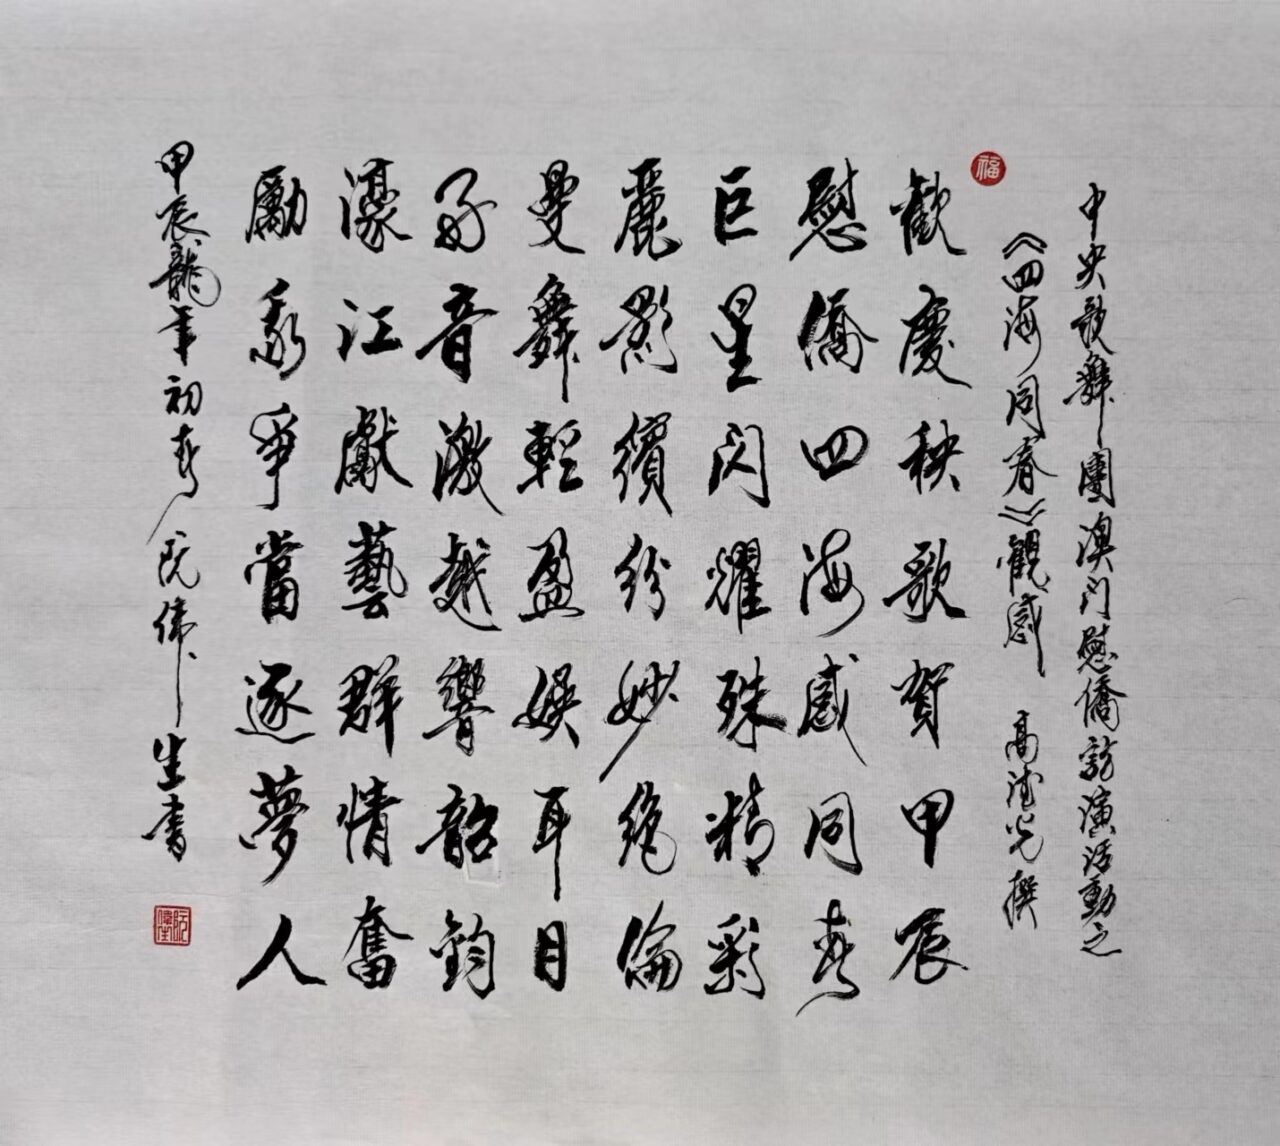 中央歌舞團澳門慰僑訪演活動之
《四海同春》觀感 高光撰
福
歡慶秧歌賀甲辰
慰僑四海感同春
巨星閃耀殊精彩
麗影繽紛妙絶倫
曼舞輕盈娛耳目
好音激越響韶鈞
濠江獻藝群情奮
勵我爭當逐夢人
甲辰龍年初春阮偉生書